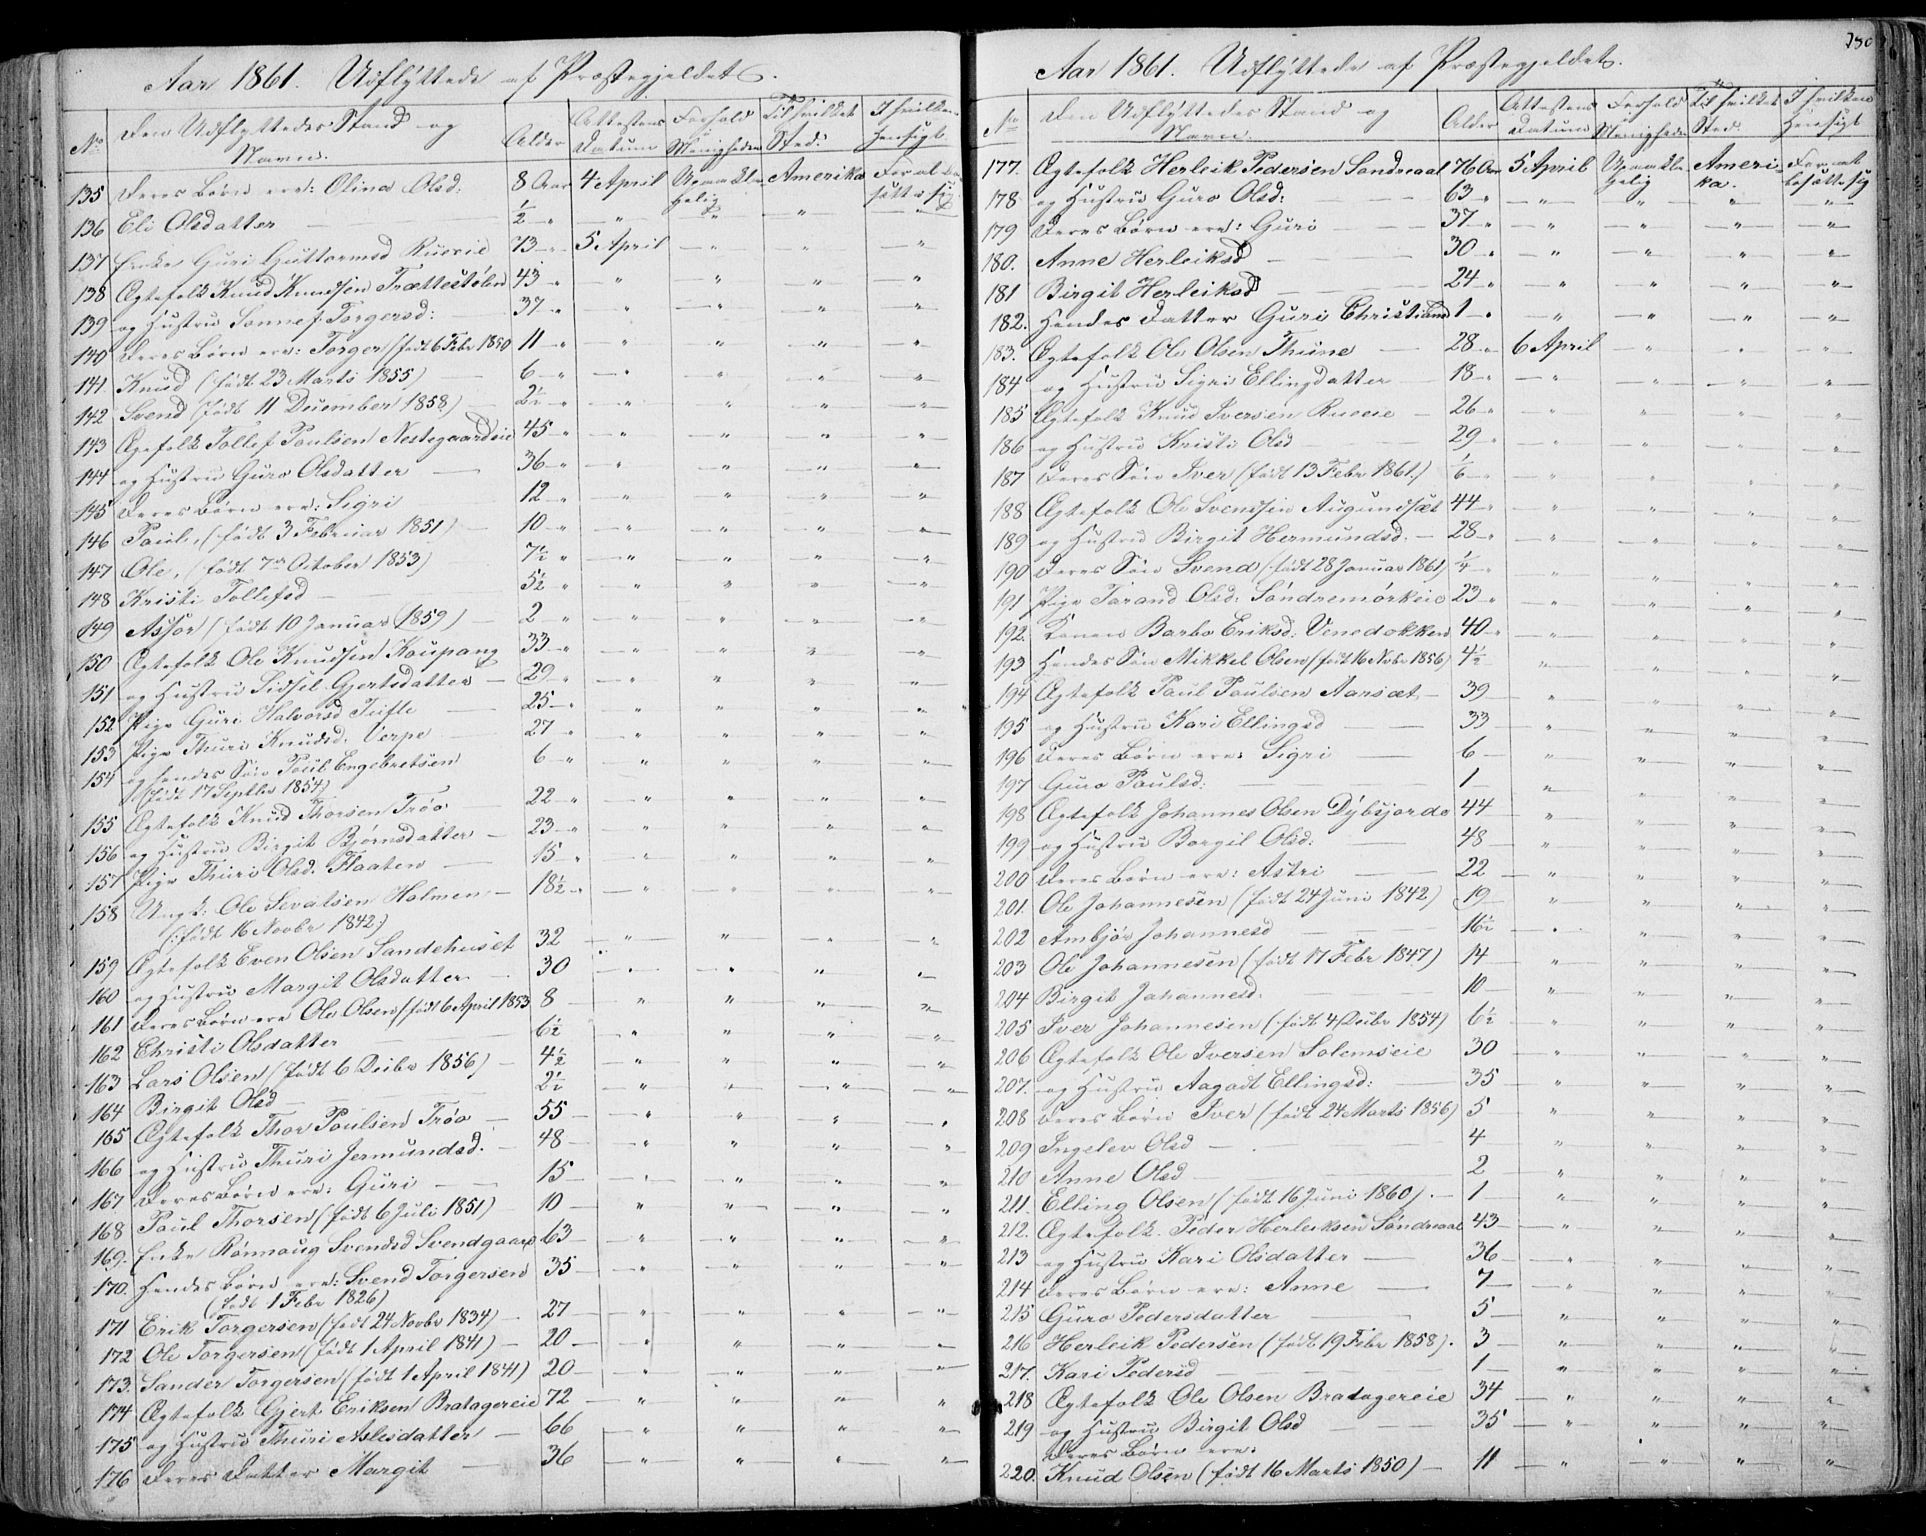 Aar 1861. Udflyttede af Præstegjeldet.
No Den Udflyttedes Stand og Navn. Alder Attestens Datum Forhold i Menigheden Til hvilket Sted: I hvilken Hensigt
135 Deres Børn ere: Olina Olsd. 8 Aar 4 April Upaaklagelig Amerika For at bosætte sig
136 Eli Olsdatter ½ " " " " "
137 Enke Guri Guttormsd Rueeie 73 " 5 April " " "
138 Ægtefolk Knud Knudsen Trættestølen 43 " " " " "
139 og Hustru Sonnef Torgersd: 37 " " " " "
140 Deres Børn ere: Torger (født 6 Febr 1850 11 " " " " "
141 Knud (født 23 Marts 1855) 6 " " " " "
142 Svend (født 11 December 1858) 2½ " " " " "
143 Ægtefolk Tollef Paulsen Nestegaardseie 45 " " " " "
144 og Hustru Guro Olsdatter 36 " " " " "
145 Deres Børn ere: Sigri 12 " " " " "
146 Paul, (født 3 Februar 1851) 10 " " " " "
147 Ole, (født 7de October 1853) 7½ " " " " "
148 Kristi Tollefsd 5½ " " " " "
149 Assor (født 10 Januar 1859) 2 " " " " "
150 Ægtefolk Ole Knudsen Kaupang 33 " " " " "
151 og Hustru Sidsel Gjertsdatter 29 " " " " "
152 Pige Guri Halvorsd Tufte 25 " " " " "
153 Pige Thuri Knudsd. Verpe 27 " " " " "
154 og hendes Søn Paul Engebretsen 6 " " " " "
(født 17 Septbr 1854)
155 Ægtefolk Knud Thorsen Trøo 22 " " " " "
156 og Hustru Birgit Bjørnsdatter 23 " " " " "
157 Pige Thuri Olsd. Flaaten 15 " " " " "
158 Ungk: Ole Sevatsen Holmen 18½ " " " " "
(:født 16 Novbr 1842)
159 Ægtefolk Even Olsen Sandehuset 32 " " " "
160 og Hustru Margit Olsdatter 30 " " " "
161 Deres Børn ere Ole Olsen (født 6 April 1853 8 " " " "
162 Christi Olsdatter 6½ " " " "
163 Lars Olsen (født 6 Decbr 1856) 4½ " " " "
164 Birgit Olsd 2½ " " " "
165 Ægtefolk Thor Paulsen Trøo 55 " " " "
166 og Hustru Thuri Jermundsd. 48 " " " "
167 Deres Børn ere: Guri 15 " " " "
168 Paul Thorsen (født 6 Juli 1851) 10 " " " "
169. Enke Rønnaug Svendsd Svendgaard 63 " " " "
170. Hendes Børn ere: Svend Torgersen 35 " " " "
(født 1 Febr 1826)
171 Erik Torgersen (født 24 Novbr 1834) 27 " " " "
172 Ole Torgersen (født 1 April 1841) 20 " " " "
173. Sander Torgersen (født 1 April 1841) 20 " " " "
174 Ægtefolk Gjert Eriksen Bratagereie 72 " " " "
175 og Hustru Thuri Aslesdatter 66 " " " "
176 Deres Datter Margit 36 " " " "
Aar 1861. Udflyttede af Præstegjeldet.
No Den Udflyttedes Stand og Navn. Alder Attestens Datum Forhold i Menigheden Til hvilket Sted. I hvilken Hensigt
177. Ægtefolk Herleik Pedersen Søndreaal 76 Aar 5 April Upaaklagelig Amerika. For at bosætte sig
178 og Hustru Guro Olsd: 63 " " " " "
179 Deres Børn ere: Guri 37 " " " " "
180. Anne Herleiksd 30 " " " " "
181 Birgit Herleiksd 24 " " " " "
182. Hendes Datter Guri Christiansd 1 " " " " "
183. Ægtefolk Ole Olsen Thune 28 " 6 April " " "
184 og Hustru Sigri Ellingdatter 18 " " " " "
185 Ægtefolk Knud Iversen Rueeie 26 " " " " "
186 og Hustru Kristi Olsd 29 " " " " "
187 Deres Søn Iver (født 13 Febr 1861.) 1/6 " " " " "
188 Ægtefolk Ole Svendsen Augundsæt 44 " " " " "
189 og Hustru Birgit Hermundsd. 28 " " " " "
190 Deres Søn Svend (født 28 Januar 1861) ¼ " " " " "
191 Pige Tarand Olsd: Søndremørkeie 23 " " " " "
192. Konen Barbo Eriksd: Venedokken 40 " " " " "
193 Hendes Søn Mikkel Olsen (født 16 Novbr 1856) 4½ " " " "
194 Ægtefolk Paul Paulsen Aarsæt 39 " " " "
195 og Hustru Kari Ellingsd 33 " " " "
196 Deres Børn ere: Sigri 6 " " " "
197 Guro Paulsd: 1 " " " "
198 Ægtefolk Johannes Olsen Dybsjorde 44 " " " "
199 og Hustru Borgil Olsd: 48 " " " "
200 Deres Børn ere: Astri 22 " " " "
201. Ole Johannesen (født 24 Juni 1842) 19 " " " "
202 Ambjør Johannesd 16½ " " " "
203 Ole Johannesen (født 17 Febr 1847) 14 " " " "
204 Birgit Johannesd: 10 " " " "
205 Iver Johannesen (:født 4 Decbr 1854) 6½ " " " "
206 Ægtefolk Ole Iversen Solemseie 30 " " " "
207. og Hustru Aagodt Ellingsd: 35 " " " "
208 Deres Børn Iver (født 24 Marts 1856) 5 " " " "
209 Ingelev Olsd 4 " " " "
210 Anne Olsd 2 " " " "
211. Elling Olsen (født 16 Juni 1860). 1 " " " "
212. Ægtefolk Peder Herleiksen Søndreaal 43 " " " "
213 og Hustru Kari Olsdatter 36 " " " "
214 Deres Børn ere: Anne 7 " " " "
215 Guro Pedersdatter 5 " " " "
216 Herleik Pedersen (født 19 Febr 1858). 3 " " " "
217. Kari Pedersd 1 " " " "
218 Ægtefolk Ole Olsen Bratagereie 34 " " " "
219 og Hustru Birgit Olsd 35 " " " "
Deres Børn ere:
220. Knud Olsen (født 16 Marts 1850) 11 " " " "